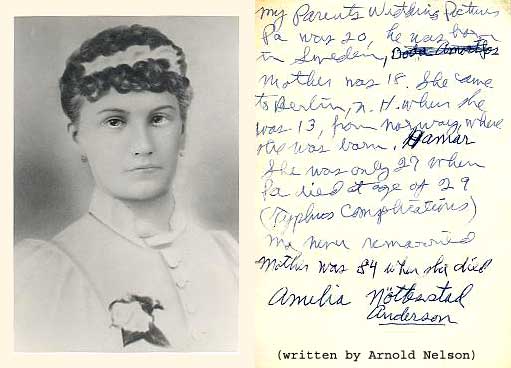 My Parents Wedding Pictures
Pa was 20, he was born
in Sweden,
Mother was 18. She came
to Berlin, N.H. when she
was 13, from norway, where
she was born. Hamar
She was only 27 when
Pa died at age of 29
(Typhus Complications)
Ma never remarried
Mother was 84 when she died
Amelia Nöttestad
Anderson
(written by Arnold Nelson)